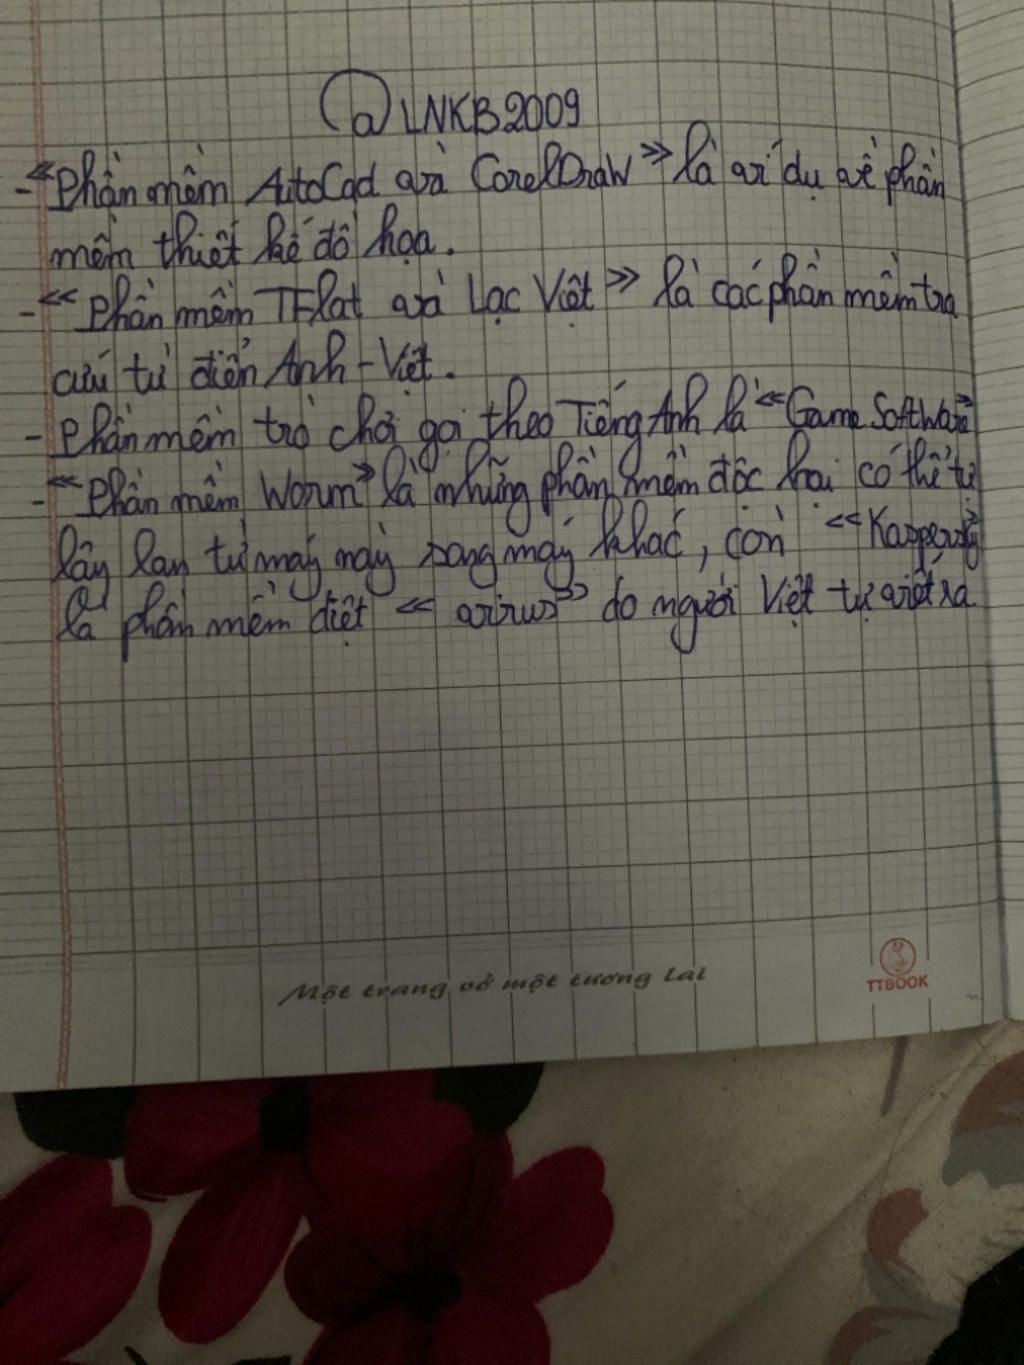 @LNKB2009
- "Phần mềm AutoCad và CorelDraw" là ví dụ về phần
mềm thiết kế đồ họa.
- "Phần mềm TFlat và Lạc Việt" là các phần mềm tra
cứu từ điển Anh-Việt.
- Phần mềm trò chơi gọi theo Tiếng Anh là "Game Software"
- "Phần mềm Worm" là những phần mềm độc hại có thể tự
lây lan từ máy này sang máy khác, còn "Kaspersky"
là phần mềm diệt "virus" do người Việt tự viết ra.
Một trang vở một tương lai
TTBOOK